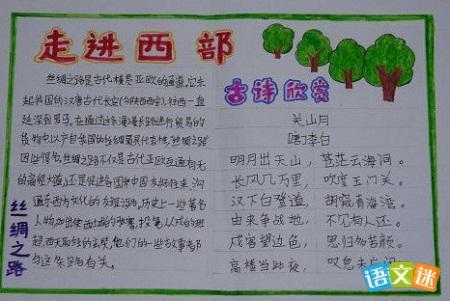 走进西部
丝绸之路是古代横贯亚欧的通道,它东
起我国的汉唐古代长安(今陕西西安),往西一直
延深到罗马。在通过这条漫漫长路进行贸易的
货物中,以产自我国的丝绸最具代表性,"丝绸之路"
因此得名。丝绸之路不仅是古代亚欧互通有无
的商贸大道,还是促进各国和中国友好往来、沟
通东西方文化的友谊之路。历史上一些著名
人物,如出使西域的张骞,投笔从戎的班
超,西天取经的玄奘,他们的一些故事都
与这条路有关。
丝绸之路
古诗欣赏
关山月
[唐]李白
明月出天山,苍茫云海间。
长风几万里,吹度玉门关。
汉下白登道,胡窥青海湾。
由来争战地,不见有人还。
戍客望边色,思归多苦颜。
高楼当此夜,叹息未应闲。
语文迷